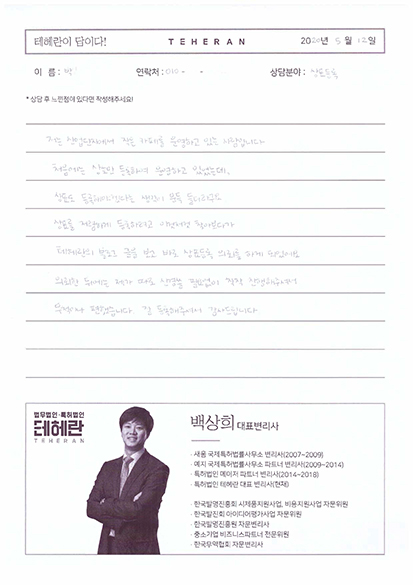 테헤란이 답이다! TEHERAN 2020년 5월 12일
이 름 : 박 연락처 : 010 - - 상담분야 : 상표등록
* 상담 후 느낀점이 있다면 작성해주세요!
저는 산업단지에서 작은 카페를 운영하고 있는 사장입니다
처음에는 상호만 등록하여 운영하고 있었는데,
상표도 등록해야겠다는 생각이 문득 들더라구요
상표를 저렴하게 등록하려고 이런저런 찾아보다가
테헤란의 블로그 글을 보고 바로 상표등록 의뢰를 하게 되었어요
의뢰한 뒤에는 제가 따로 신경쓸 필요없이 착착 진행해주셔서
무척이나 편했습니다. 잘 등록해주셔서 감사드립니다
법무법인·특허법인
테헤란
TEHERAN
백상희 대표변리사
· 새움 국제특허법률사무소 변리사(2007~2009)
· 예지 국제특허법률사무소 파트너 변리사(2009~2014)
· 특허법인 메이저 파트너 변리사(2014~2018)
· 특허법인 테헤란 대표 변리사(현재)
· 한국발명진흥회 시제품지원사업, 비용지원사업 자문위원
· 한국발진회 아이디어평가사업 자문위원
· 한국발명진흥원 자문변리사
· 중소기업 비즈니스파트너 전문위원
· 한국무역협회 자문변리사